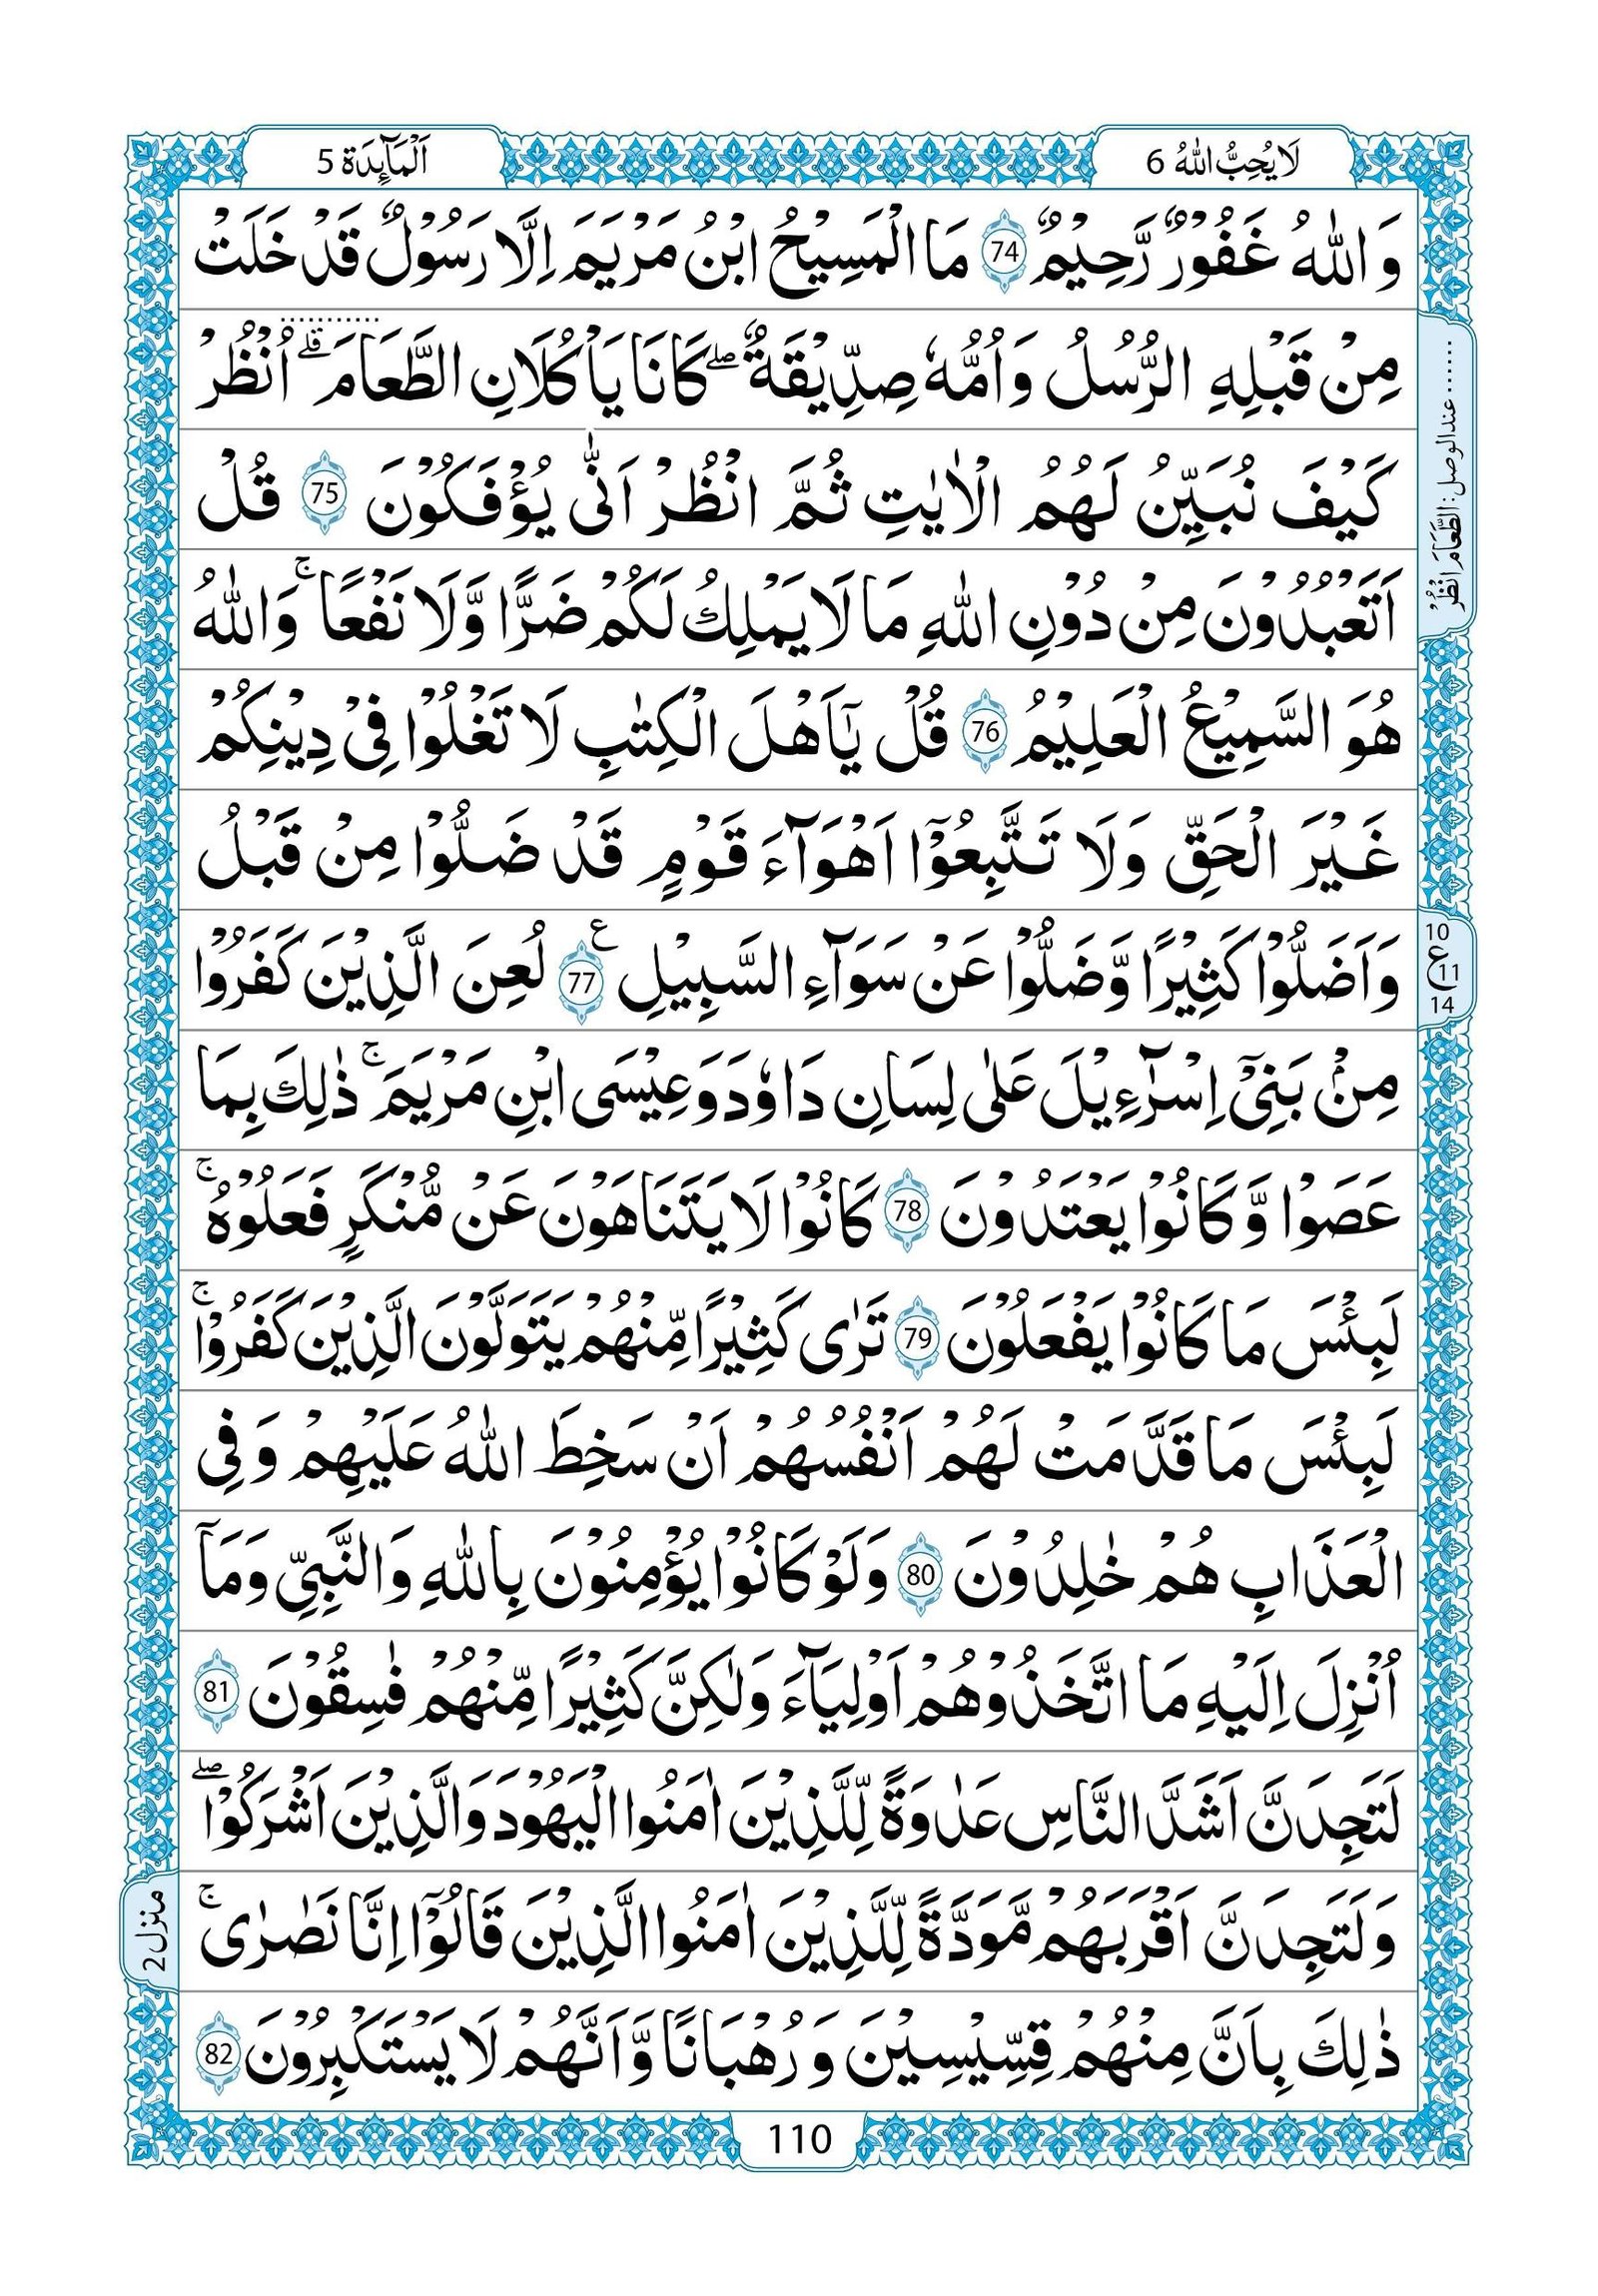 لَا یُحِبُّ اللّٰهُ 6
اَلْمَآىِٕدَة 5
وَ اللّٰهُ غَفُوْرٌ رَّحِیْمٌ 74 مَا الْمَسِیْحُ ابْنُ مَرْیَمَ اِلَّا رَسُوْلٌ قَدْ خَلَتْ
مِنْ قَبْلِهِ الرُّسُلُ وَ اُمُّهٗ صِدِّیْقَةٌ ۖ كَانَا یَاْكُلَانِ الطَّعَامَ ۗ اُنْظُرْ
كَیْفَ نُبَیِّنُ لَهُمُ الْاٰیٰتِ ثُمَّ انْظُرْ اَنّٰی یُؤْفَكُوْنَ 75 قُلْ
اَتَعْبُدُوْنَ مِنْ دُوْنِ اللّٰهِ مَا لَا یَمْلِكُ لَكُمْ ضَرًّا وَّ لَا نَفْعًا ۚ وَ اللّٰهُ
هُوَ السَّمِیْعُ الْعَلِیْمُ 76 قُلْ یٰۤاَهْلَ الْكِتٰبِ لَا تَغْلُوْا فِیْ دِیْنِكُمْ
غَیْرَ الْحَقِّ وَ لَا تَتَّبِعُوْۤا اَهْوَآءَ قَوْمٍ قَدْ ضَلُّوْا مِنْ قَبْلُ
وَ اَضَلُّوْا كَثِیْرًا وَّ ضَلُّوْا عَنْ سَوَآءِ السَّبِیْلِ ع 77 لُعِنَ الَّذِیْنَ كَفَرُوْا
مِنْۢ بَنِیْۤ اِسْرَآءِیْلَ عَلٰی لِسَانِ دَاوٗدَ وَ عِیْسَی ابْنِ مَرْیَمَ ۚ ذٰلِكَ بِمَا
عَصَوْا وَّ كَانُوْا یَعْتَدُوْنَ 78 كَانُوْا لَا یَتَنَاهَوْنَ عَنْ مُّنْكَرٍ فَعَلُوْهُ ۚ
لَبِئْسَ مَا كَانُوْا یَفْعَلُوْنَ 79 تَرٰی كَثِیْرًا مِّنْهُمْ یَتَوَلَّوْنَ الَّذِیْنَ كَفَرُوْا ۚ
لَبِئْسَ مَا قَدَّمَتْ لَهُمْ اَنْفُسُهُمْ اَنْ سَخِطَ اللّٰهُ عَلَیْهِمْ وَ فِی
الْعَذَابِ هُمْ خٰلِدُوْنَ 80 وَ لَوْ كَانُوْا یُؤْمِنُوْنَ بِاللّٰهِ وَ النَّبِیِّ وَ مَاۤ
اُنْزِلَ اِلَیْهِ مَا اتَّخَذُوْهُمْ اَوْلِیَآءَ وَ لٰكِنَّ كَثِیْرًا مِّنْهُمْ فٰسِقُوْنَ 81
لَتَجِدَنَّ اَشَدَّ النَّاسِ عَدَاوَةً لِّلَّذِیْنَ اٰمَنُوا الْیَهُوْدَ وَ الَّذِیْنَ اَشْرَكُوْا ۖ
وَ لَتَجِدَنَّ اَقْرَبَهُمْ مَّوَدَّةً لِّلَّذِیْنَ اٰمَنُوا الَّذِیْنَ قَالُوْۤا اِنَّا نَصٰرٰی ۚ
ذٰلِكَ بِاَنَّ مِنْهُمْ قِسِّیْسِیْنَ وَ رُهْبَانًا وَّ اَنَّهُمْ لَا یَسْتَكْبِرُوْنَ 82
...... عندالوصل: الطَّعَامَ انْظُرْ
10
ع 11
14
منزل 2
110